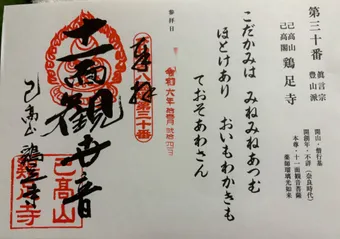 第三十番
眞言宗
豊山派
己高山
己高閣
鶏足寺
開山・僧行基
開創年・不詳(奈良時代)
本尊・十一面観音菩薩
薬師瑠璃光如来
こだかみは みねみねあつむ
ほとけあり おいもわかきも
ておそあわさん
参拝日
令和六年
奉拝
第三十番
十一面観世音
己高山 鶏足寺
己高山
鶏足寺